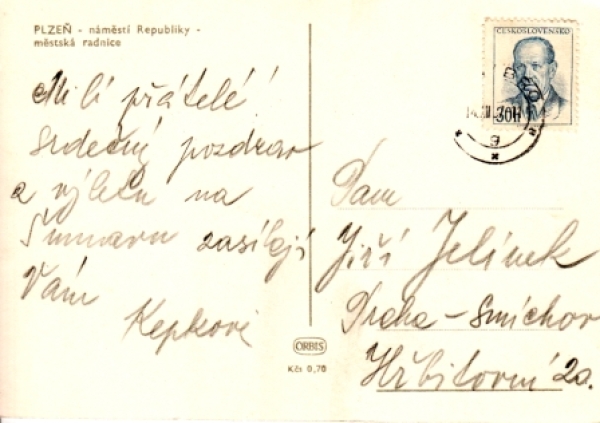 PLZEŇ - náměstí Republiky -
městská radnice
Milí přátelé!
Srdečný pozdrav
z výletu na
Šumavu zasílají
Vám
Kepkovi
ČESKOSLOVENSKO
30H
9
Pan
Jiří Jelínek
Praha-Smíchov
Hřbitovní 20.
ORBIS
Kčs 0,70